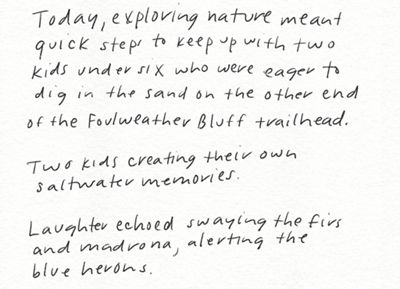 Today, exploring nature meant
quick steps to keep up with two
kids under six who were eager to
dig in the sand on the other end
of the Foulweather Bluff trailhead.
Two kids creating their own
saltwater memories.
Laughter echoed swaying the firs
and madrona, alerting the
blue herons.